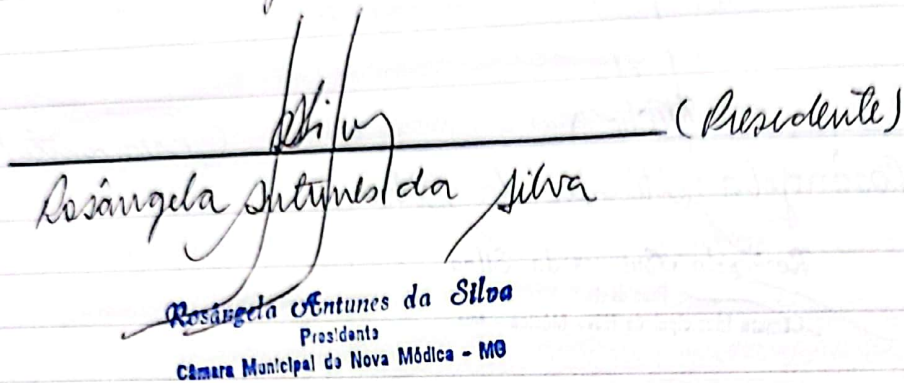 (Presidente)
Rosângela Antunes da Silva
Rosângela Antunes da Silva
Presidente
Câmara Municipal de Nova Módica - MG